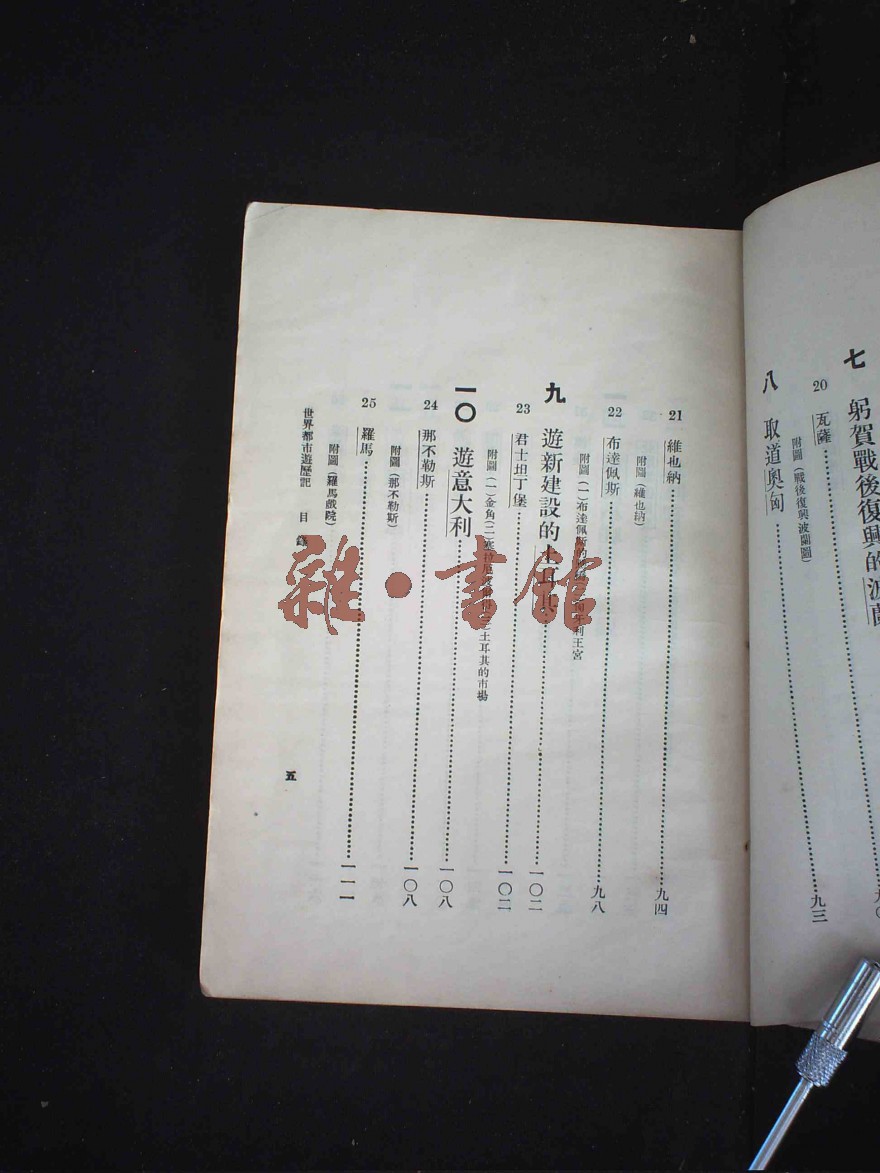 七 躬賀戰後復興的波蘭
20 瓦薩
附圖(戰後復興波蘭圖)
八 取道奧匈……九三
21 維也納……九四
附圖(維也納)
22 布達佩斯……九八
附圖(一)布達佩斯的 匈牙利王宮
九 遊新建設的土耳其……一〇二
23 君士坦丁堡……一〇二
附圖(一)金角(二) 土耳其的市場
一〇 遊意大利……一〇八
24 那不勒斯……一〇八
附圖(那不勒斯)
25 羅馬……一一一
附圖(羅馬戲院)
世界都市遊歷記 目錄 五
雜·書館